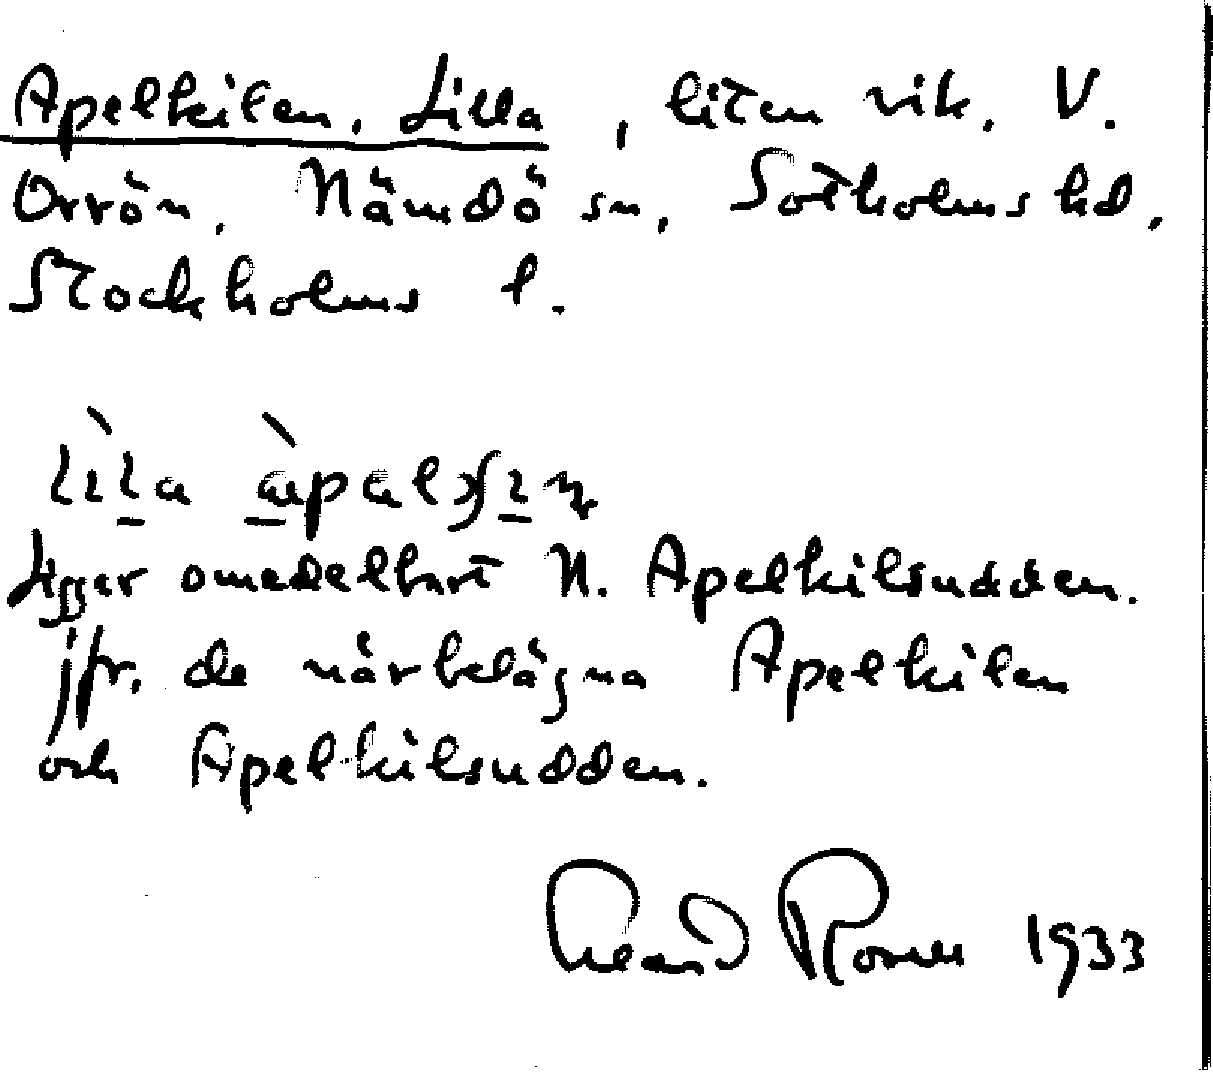 Apelkilen, Lilla, liten vik, V.
Orrön, Nämdö sn, Sotholms hd,
Stockholms l.
ligger omedelbart N. Apelkilsudden.
jfr. de närbelägna Apelkilen
och Apelkilsudden.
1933